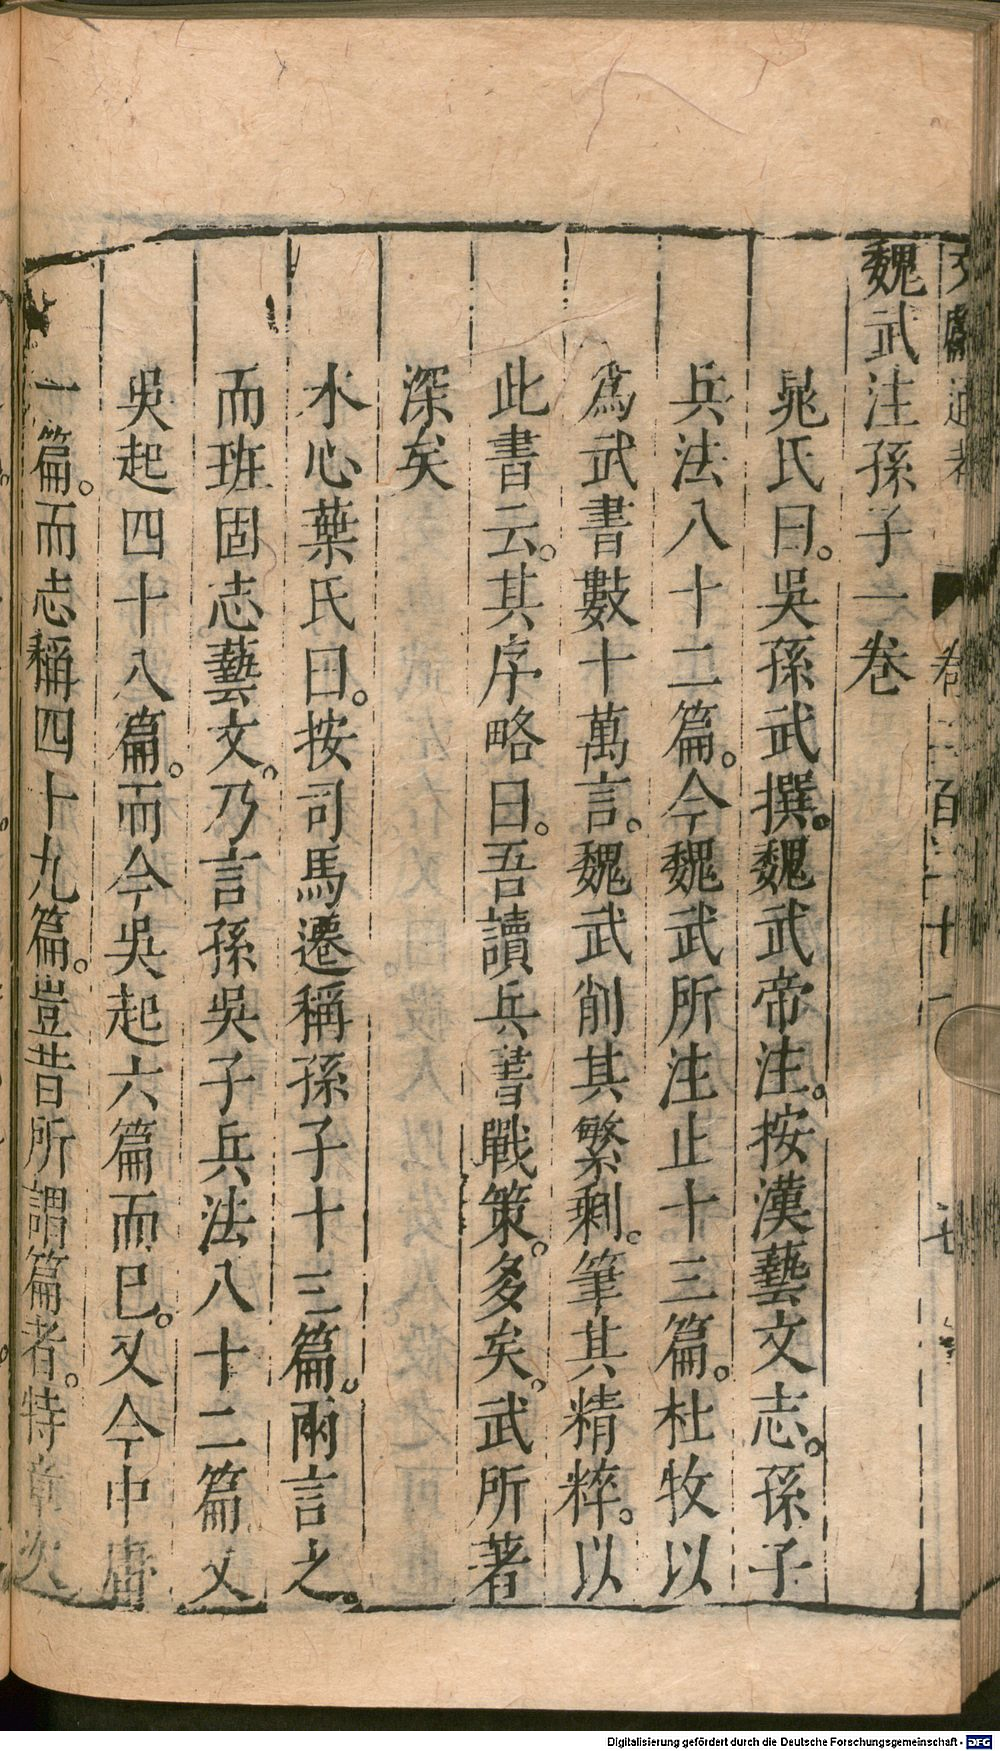 魏武注孫子一卷
晁氏曰。吳孫武撰。魏武帝注。按漢藝文志。孫子
兵法八十二篇。今魏武所注止十三篇。杜牧以
爲武書數十萬言。魏武削其繁剩。筆其精粹。以
此書云。其序略曰。吾讀兵書戰策。多矣。武所著
深矣
水心葉氏曰。按司馬遷稱孫子十三篇。兩言之。
而班固志藝文。乃言孫吳子兵法八十二篇又
吳起四十八篇。而今吳起六篇而已。又今中庸
一篇。而志稱四十九篇。豈昔所謂篇者。特章次
Digitalisierung gefördert durch die Deutsche Forschungsgemeinschaft - DFG